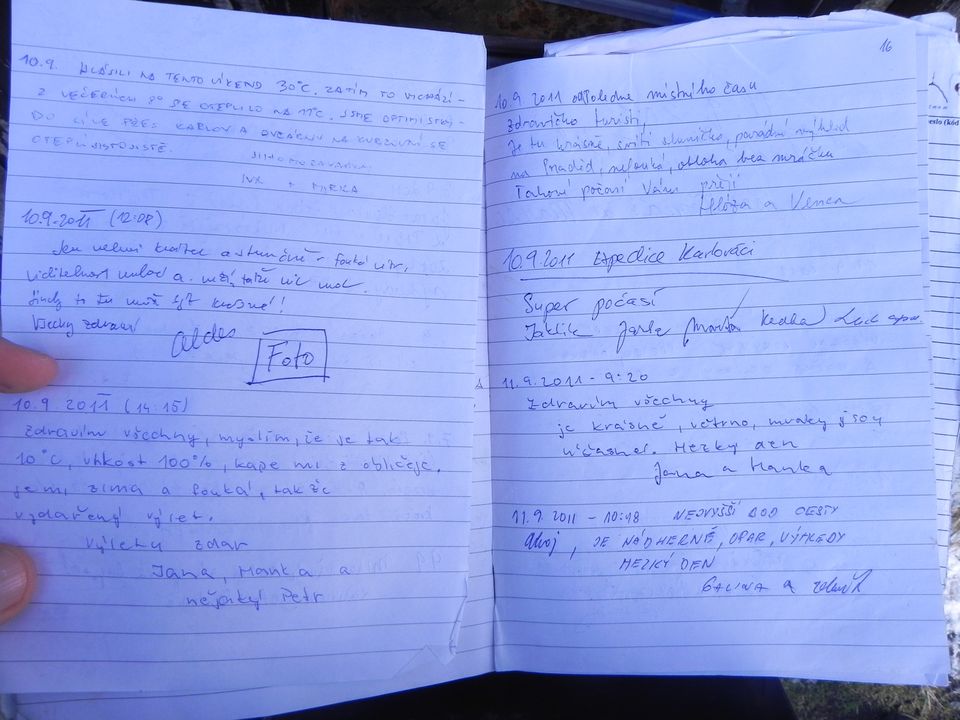 10.9. HLÁSILI NA TENTO VÍKEND 30°C. ZATÍM TO VYCHÁZÍ -
Z VEČERNÍCH 9° SE OTEPLILO NA 11°C. JSME OPTIMISTKY -
DO CÍLE PŘES KARLOV A OVČÁRNU NA SE
OTEPLÍ JISTOJISTĚ.
+ MIRKA
10.9.2011 (12:08)
Jen velmi krátce a stručně - fouká vítr,
viditelnost a takže nic moc.
Jindy to tu musí být krásné!
Všechny zdraví
Aldes
Foto
10.9.2011 (14:15)
Zdravím všechny, myslím, že je tak
10°C, vlhkost 100%, kape mi z obličeje,
je mi zima a fouká, takže
vydařený výlet.
Výletu zdar
Jana, Hanka a
Petr
16
10.9 2011 odpoledne místního času
Zdravíčko turisti,
Je tu krásně, svítí sluníčko, parádní výhled
na Praděd, nefouká, obloha bez mráčku
Takové počasí Vám přejí
a Venca
10.9.2011 Expedice Karlováci
Super počasí
Jarka Marta
11.9.2011 - 9:20
Zdravím všechny
je krásně, větrno, mraky jsou
úžasné. Hezký den
Jana a Hanka
11.9.2011 - 10:48 NEJVYŠŠÍ BOD CESTY
Ahoj, JE NÁDHERNĚ, OPAR, VÝHLEDY
HEZKÝ DEN
GALINA a